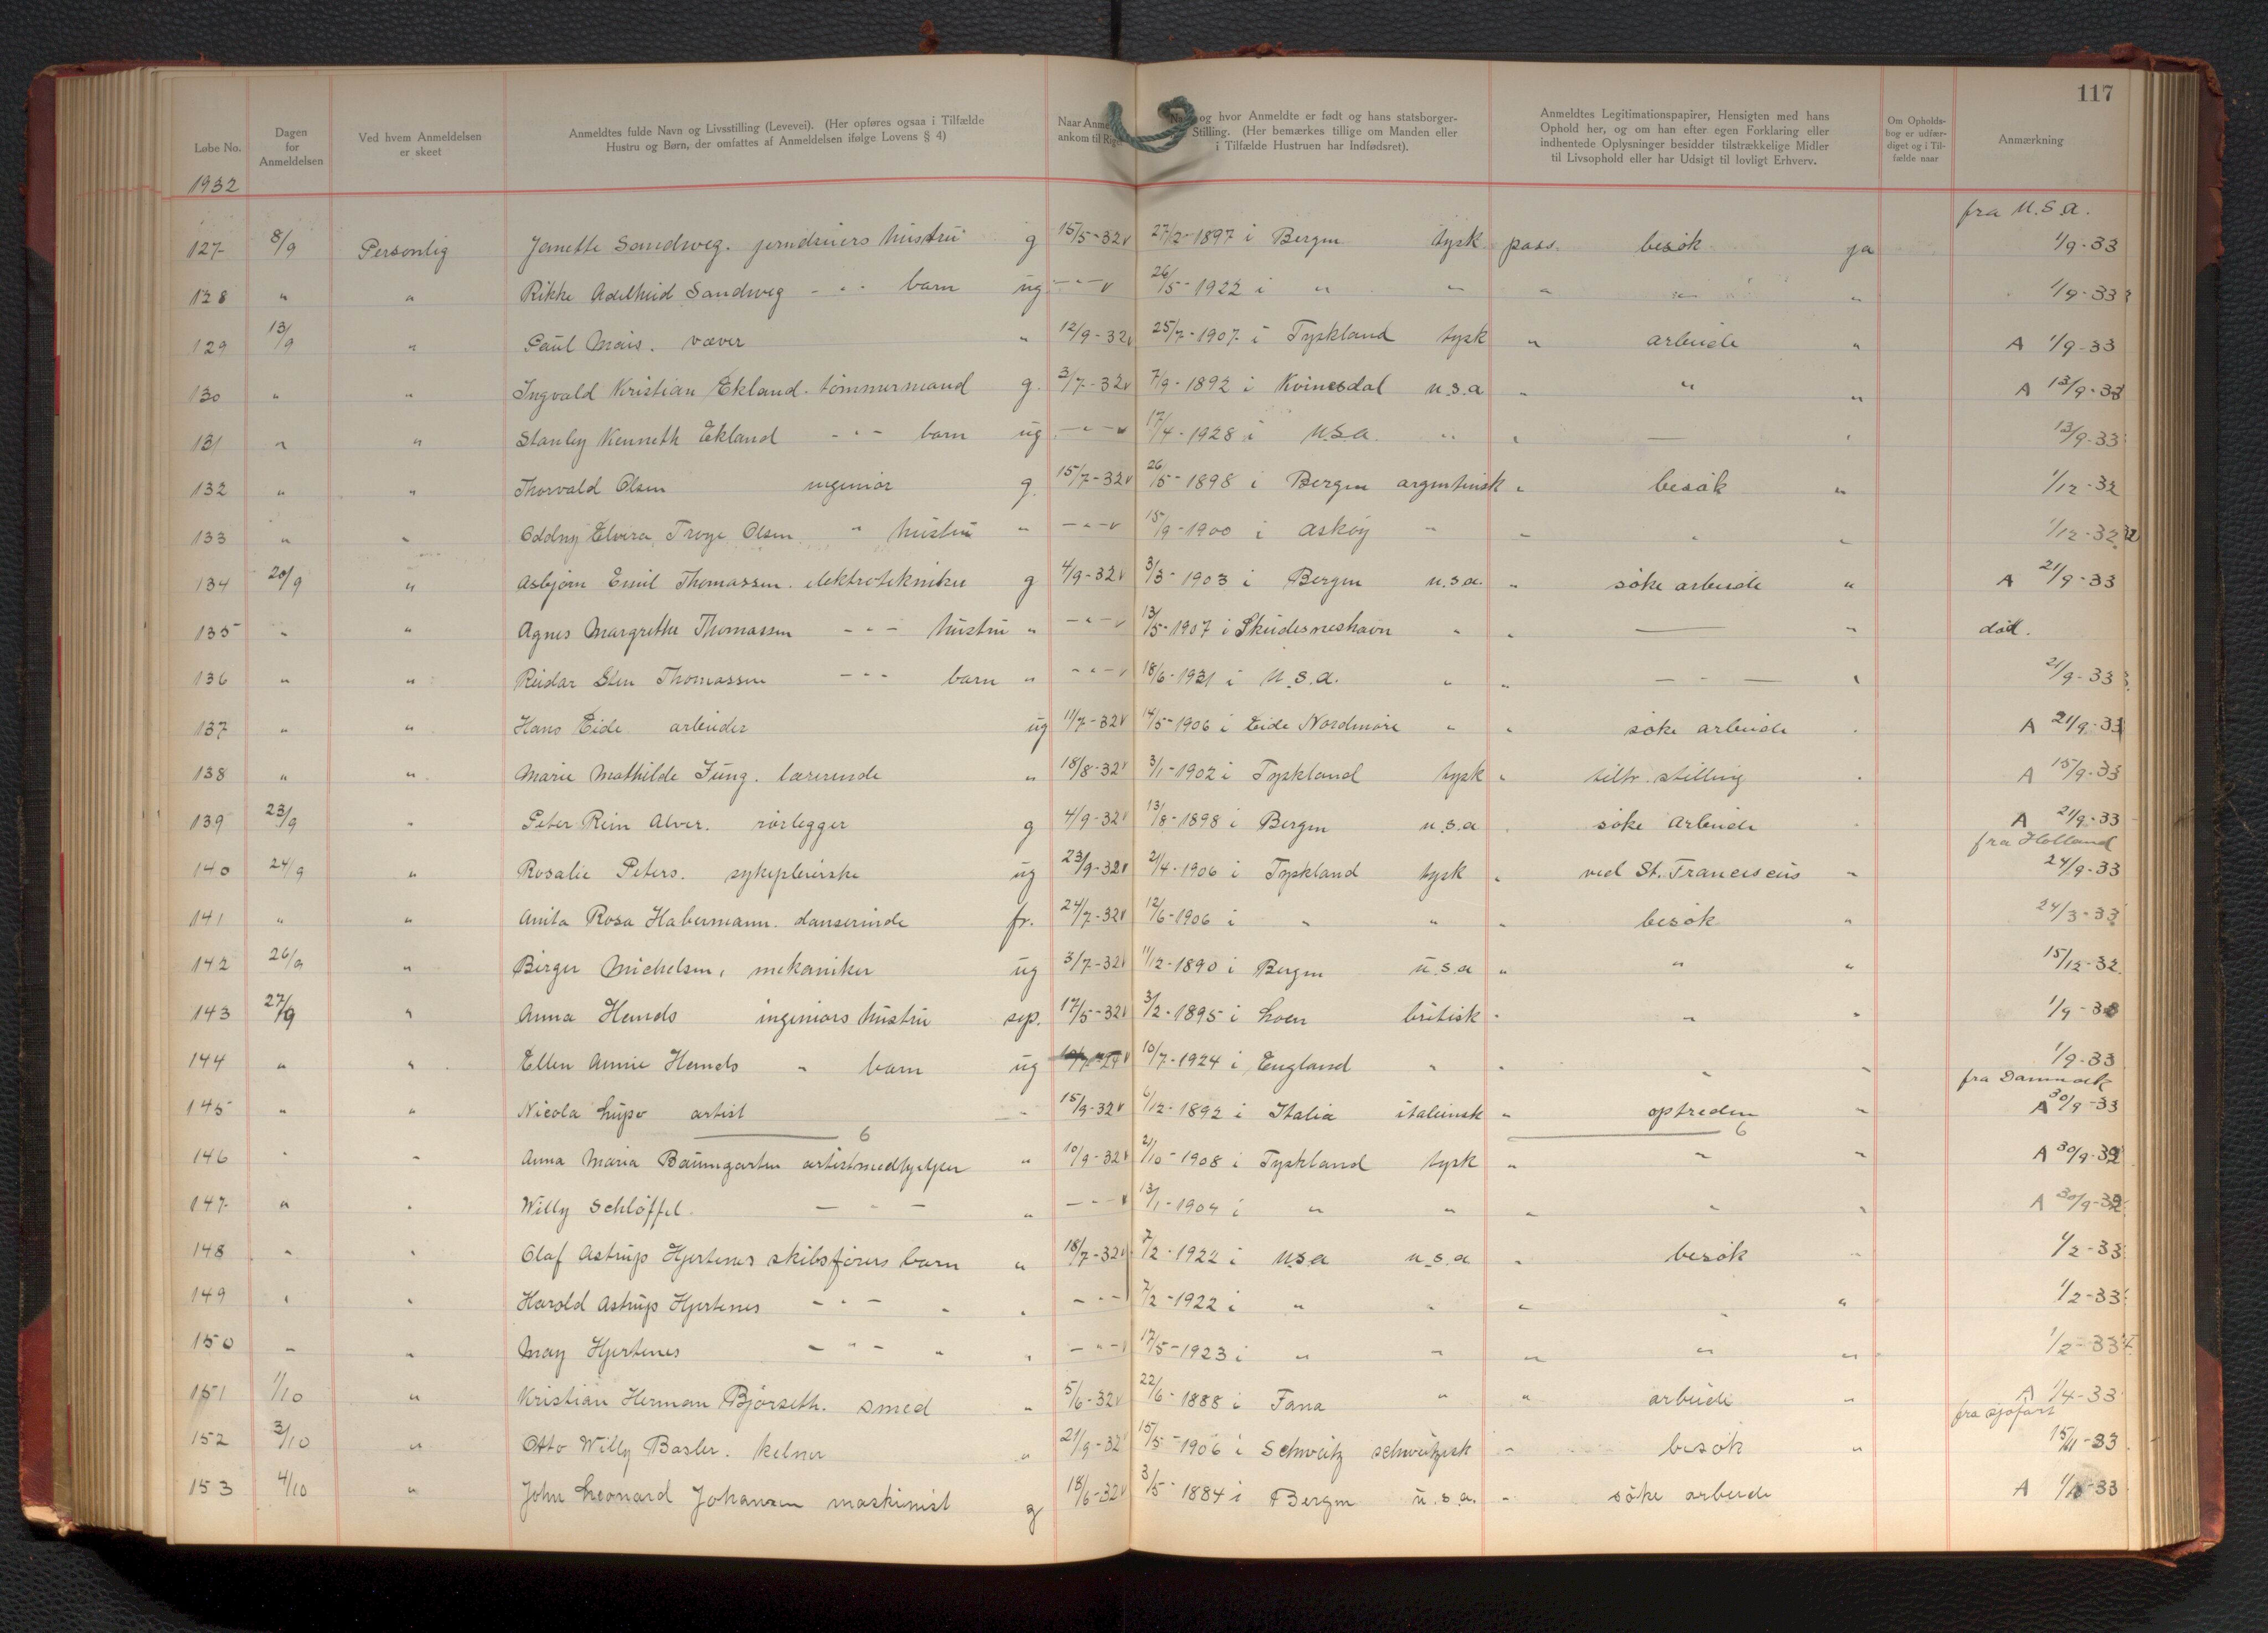 117
Løbe No.
Dagen for Anmeldelsen
Ved hvem Anmeldelsen er skeet
Anmeldtes fulde Navn og Livsstilling (Levevei). (Her opføres ogsaa i Tilfælde Hustru og Børn, der omfattes af Anmeldelsen ifølge Lovens § 4)
Naar Anme ankom til Rig
og hvor Anmeldte er født og hans statsborger- Stilling. (Her bemærkes tillige om Manden eller i Tilfælde Hustruen har Indfødsret).
Anmeldtes Legitimationspapirer, Hensigten med hans Ophold her, og om han efter egen Forklaring eller indhentede Oplysninger besidder tilstrækkelige Midler til Livsophold eller har Udsigt til lovligt Erhverv.
Om Opholds- bog er udfær- diget og i Til- fælde naar
Anmærkning
1932
fra U.S.A.
127 8/9 Personlig Janette Sandweg. hustru g 15/5-32 v 27/2-1897 i Bergen tysk pass. besök ja 1/9-33
128 " " Rikke Adelheid Sandweg - " - barn ug - " - v 26/5-1922 i " " " " " 1/9-33
129 13/9 " Paul Mais. væver " 12/9-32 v 25/7-1907 i Tyskland tysk " arbeide " A 1/9-33
130 " " Ingvald Kristian Ekland. tömmermand g. 3/7-32 v 7/9-1892 i Kvinesdal u.s.a " " " A 13/9-33
131 " " Stanley Kenneth Ekland - " - barn ug - " - v 17/4-1928 i U.S.A. " " — " 13/9-33
132 " " Thorvald Olsen ingeniör g. 15/7-32 v 26/5-1898 i Bergen argentinsk " besök " 1/12-32
133 " " Oddny Elvira Troye Olsen " hustru " - " - v 15/9-1900 i Asköy " " " " 1/12-32
134 20/9 " Asbjörn Emil Thomassen. elektrotekniker g 4/9-32 v 3/3-1903 i Bergen u.s.a. " söke arbeide " A 21/9-33
135 " " Agnes Margrethe Thomassen - " - hustru " - " - v 13/5-1907 i Skudesneshavn " " — " död.
136 " " Reidar Sten Thomassen - " - barn " - " - v 18/6-1931 i U.S.A. " " — " — " 21/9-33
137 " " Hans Eide arbeider ug 11/7-32 v 14/5-1906 i Eide Nordmöre " " söke arbeide " A 21/9-33
138 " " Marie Mathilde Jung. lærerinde " 18/8-32 v 3/1-1902 i Tyskland tysk " tiltr. stilling " A 15/9-33
139 23/9 " Peter Rein Alver. rörlegger g 4/9-32 v 13/8-1898 i Bergen u.s.a " söke arbeide " A 21/9-33
fra Holland
140 24/9 " Rosalie Peters. sykepleierske ug 23/9-32 v 21/4-1906 i Tyskland tysk " ved St. Franciscus " 24/9-33
141 " " Anita Rosa Habermann. danserinde fr. 24/7-32 v 12/6-1906 i " " " besök " 24/3-33
142 26/9 " Birger Michelsen, mekaniker ug 3/7-32 v 11/12-1890 i Bergen u.s.a " " " 15/12-32
143 27/9 " Anna Hemds ingeniörs hustru sep. 17/5-32 v 3/2-1895 i Loen britisk " " " 1/9-33
144 " " Ellen Annie Hemds " barn ug 10/7-1924 i England " " " " 1/9-33
fra Danmark
145 " " Nicola Lupo artist " 15/9-32 v 6/12-1892 i Italia italiensk " optreden " A 30/9-33
6 6
146 " " Anna Maria Baumgarten artistmedhjelper " 10/9-32 v 21/10-1908 i Tyskland tysk " " " A 30/9-32
147 " " Willy Schlöffel. - " - " - " - v 13/1-1904 i " " " " " A 30/9-32
148 " " Olaf Astrup Hjertenes skibsförers barn " 18/7-32 v 7/2-1922 i U.S.A u.s.a " besök " 1/2-33
149 " " Harold Astrup Hjertenes - " - " " - " - 7/2-1922 i " " " " " 1/2-33
150 " " May Hjertenes - " - " " - " - 17/5-1923 i " " " " " 1/2-33
151 1/10 " Kristian Herman Björseth. smed " 5/6-32 v 22/6-1888 i Fana " " arbeide " A 1/4-33
fra sjöfart
152 3/10 " Otto Willy Basler. kelner " 21/9-32 15/5-1906 i Schweitz schweitzisk " besök " 15/11-33
153 4/10 " John Leonard Johansen maskinist g 18/6-32 v 3/5-1884 i Bergen u.s.a. " söke arbeide A -33